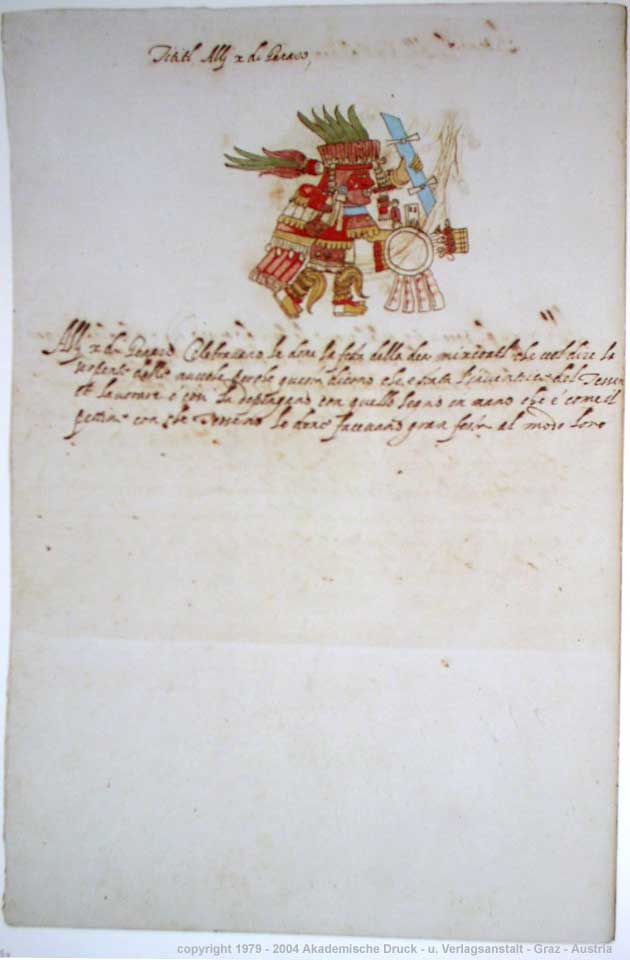 Tititl Alli x di Genaro,
Alli x di Genaro Celebravano le done la festa della dea mixcoatl che vol dire la
serpente delle nuvole perche questa dicono che e stata l'inventrice del Tessere
et lavorare e con la depingano con quello segno in mano che e come il
pettine con che Tesseno le done facevano gran festa al modo loro
copyright 1979 - 2004 Akademische Druck - u. Verlagsanstalt - Graz - Austria